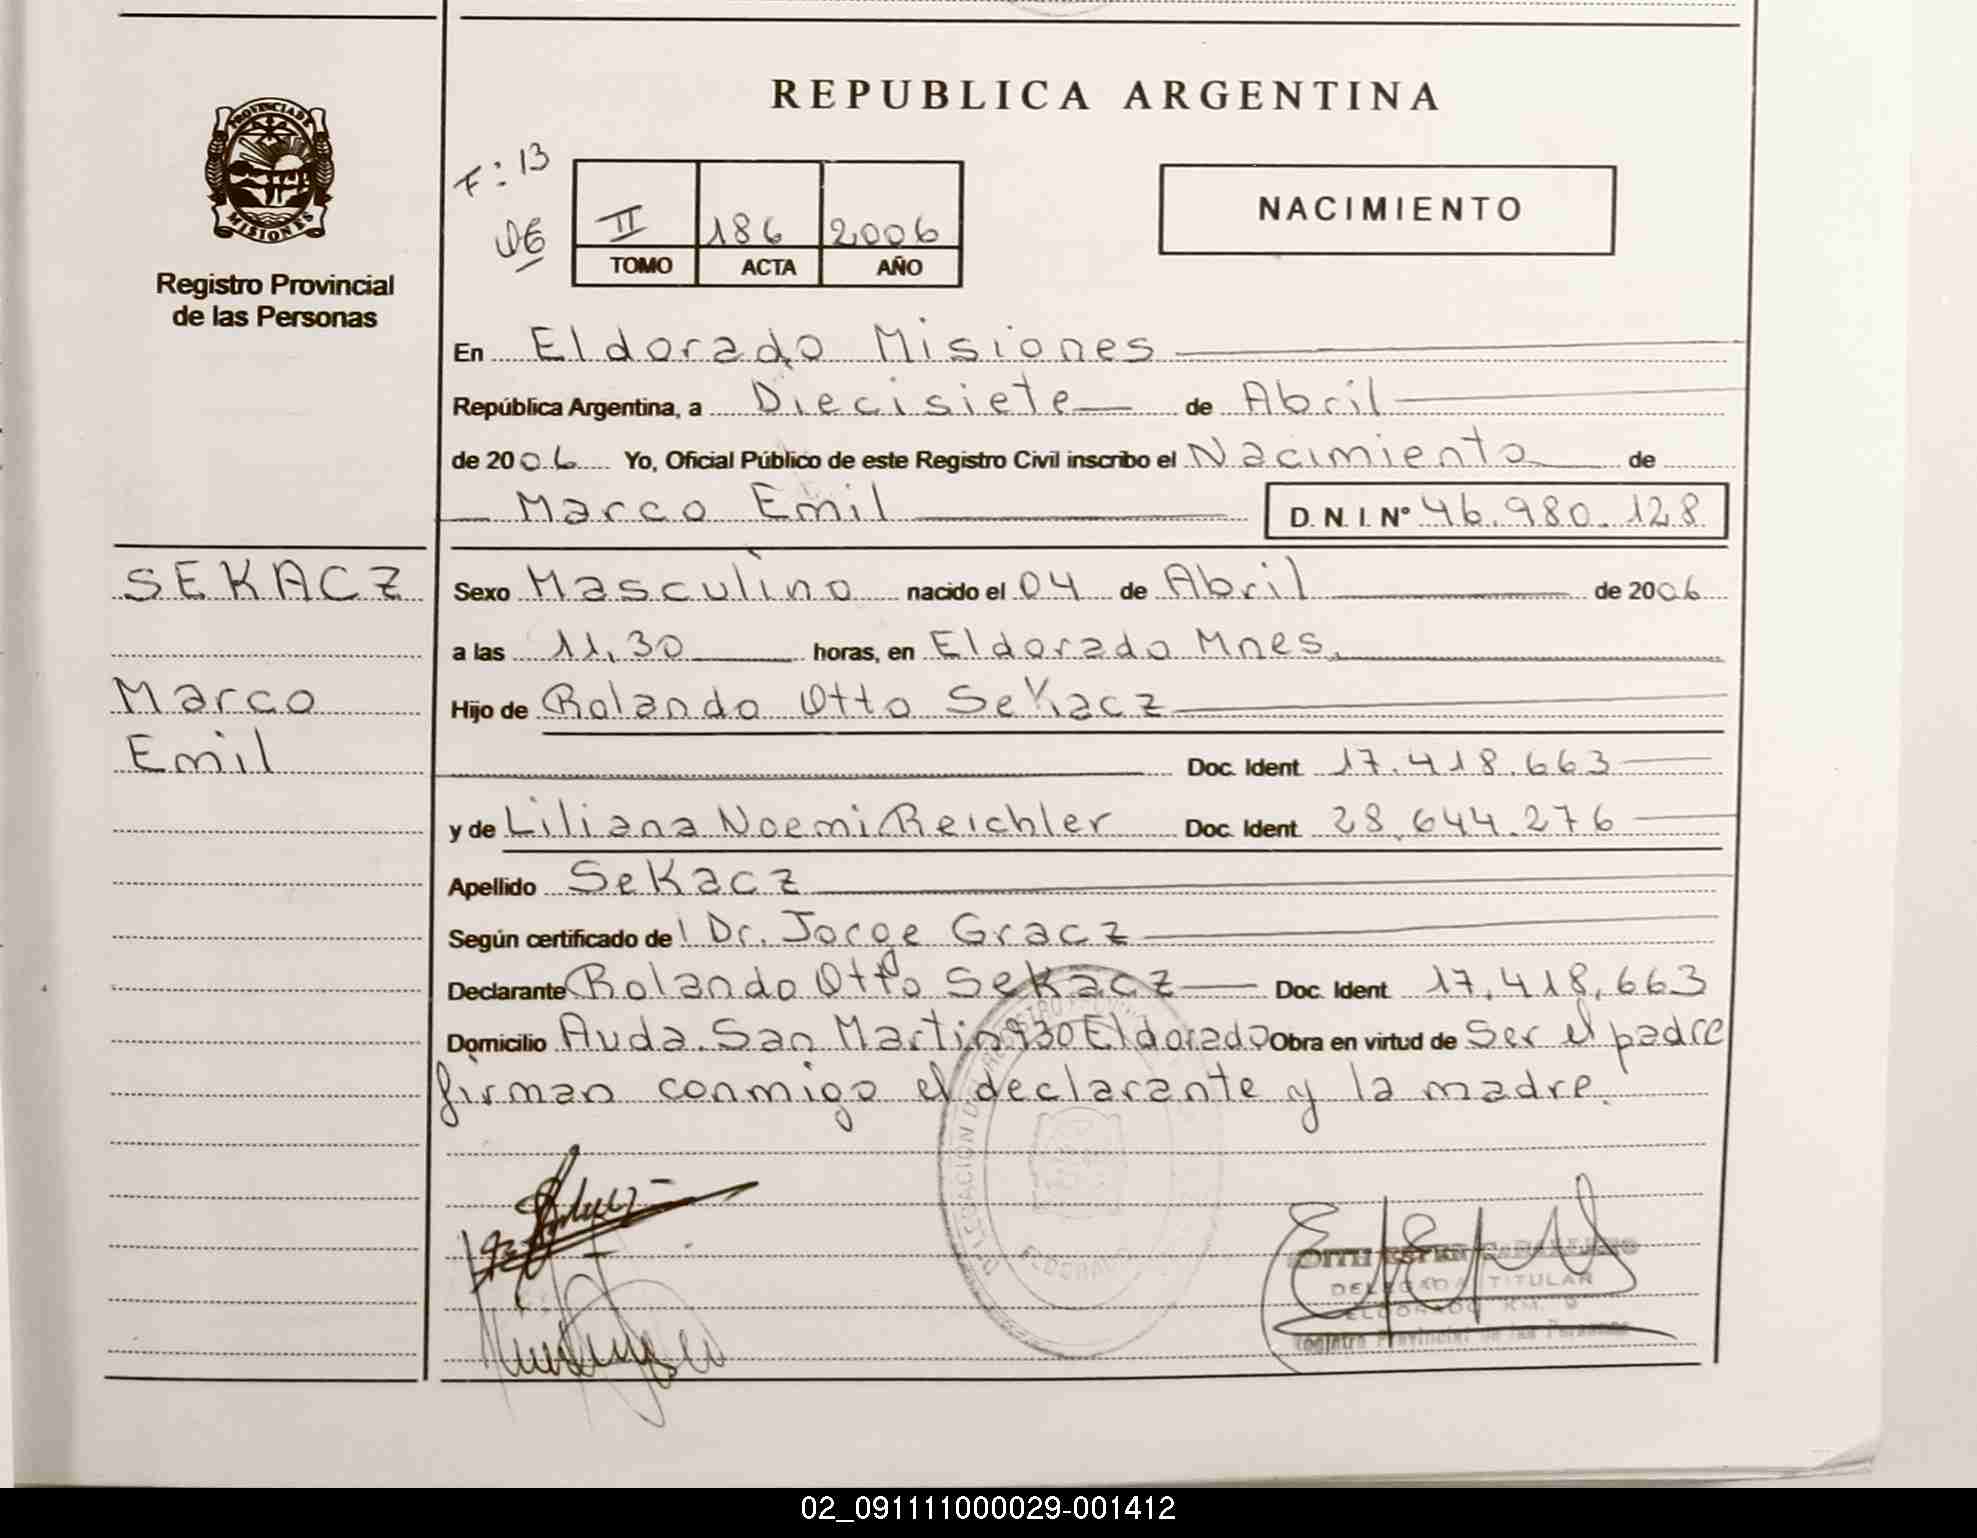 REPUBLICA ARGENTINA
PROVINCIA DE
MISIONES
Registro Provincial
de las Personas
F: 13
II 186 2006
TOMO ACTA AÑO
NACIMIENTO
En Eldorado Misiones
República Argentina, a Diecisiete de Abril
de 2006 Yo, Oficial Público de este Registro Civil inscribo el Nacimiento de
Marco Emil D. N. I. Nº 46.980.128
SEKACZ
Marco
Emil
Sexo Masculino nacido el 04 de Abril de 2006
a las 11,30 horas, en Eldorado Mnes.
Hijo de Rolando Otto Sekacz
Doc. Ident. 17.418.663
y de Liliana Noemi Reichler Doc. Ident. 28.644.276
Apellido Sekacz
Según certificado de Dr. Jorge Gracz
Declarante Rolando Otto Sekacz Doc. Ident. 17.418.663
Domicilio Avda. San Martin 930 Eldorado Obra en virtud de Ser el padre
firman conmigo el declarante y la madre.
ELDORADO
DELEGADA TITULAR
ELDORADO KM. 9
Registro Provincial de las Personas
02_091111000029-001412